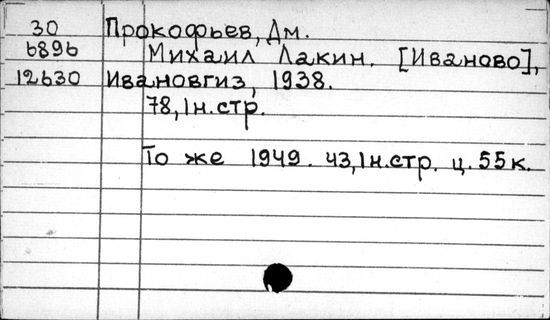 30 Прокофьев, Дм.
6896 Михаил Лакин. [Иваново],
12630 Ивановгиз, 1938.
78,1н.стр.
То же 1949. 43,1н.стр. ц. 55к.